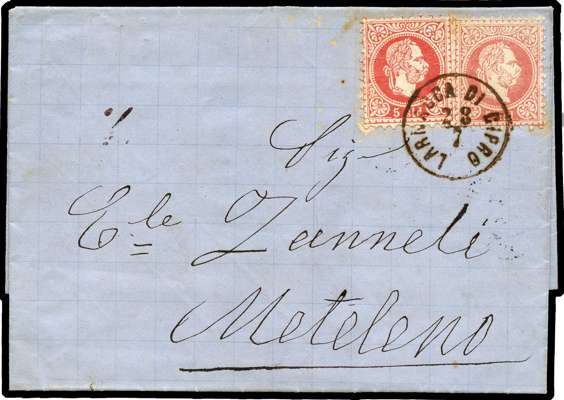 LARNACCA DI CIPRO
28
7
Sigr
Ele Zanneli
Meteleno